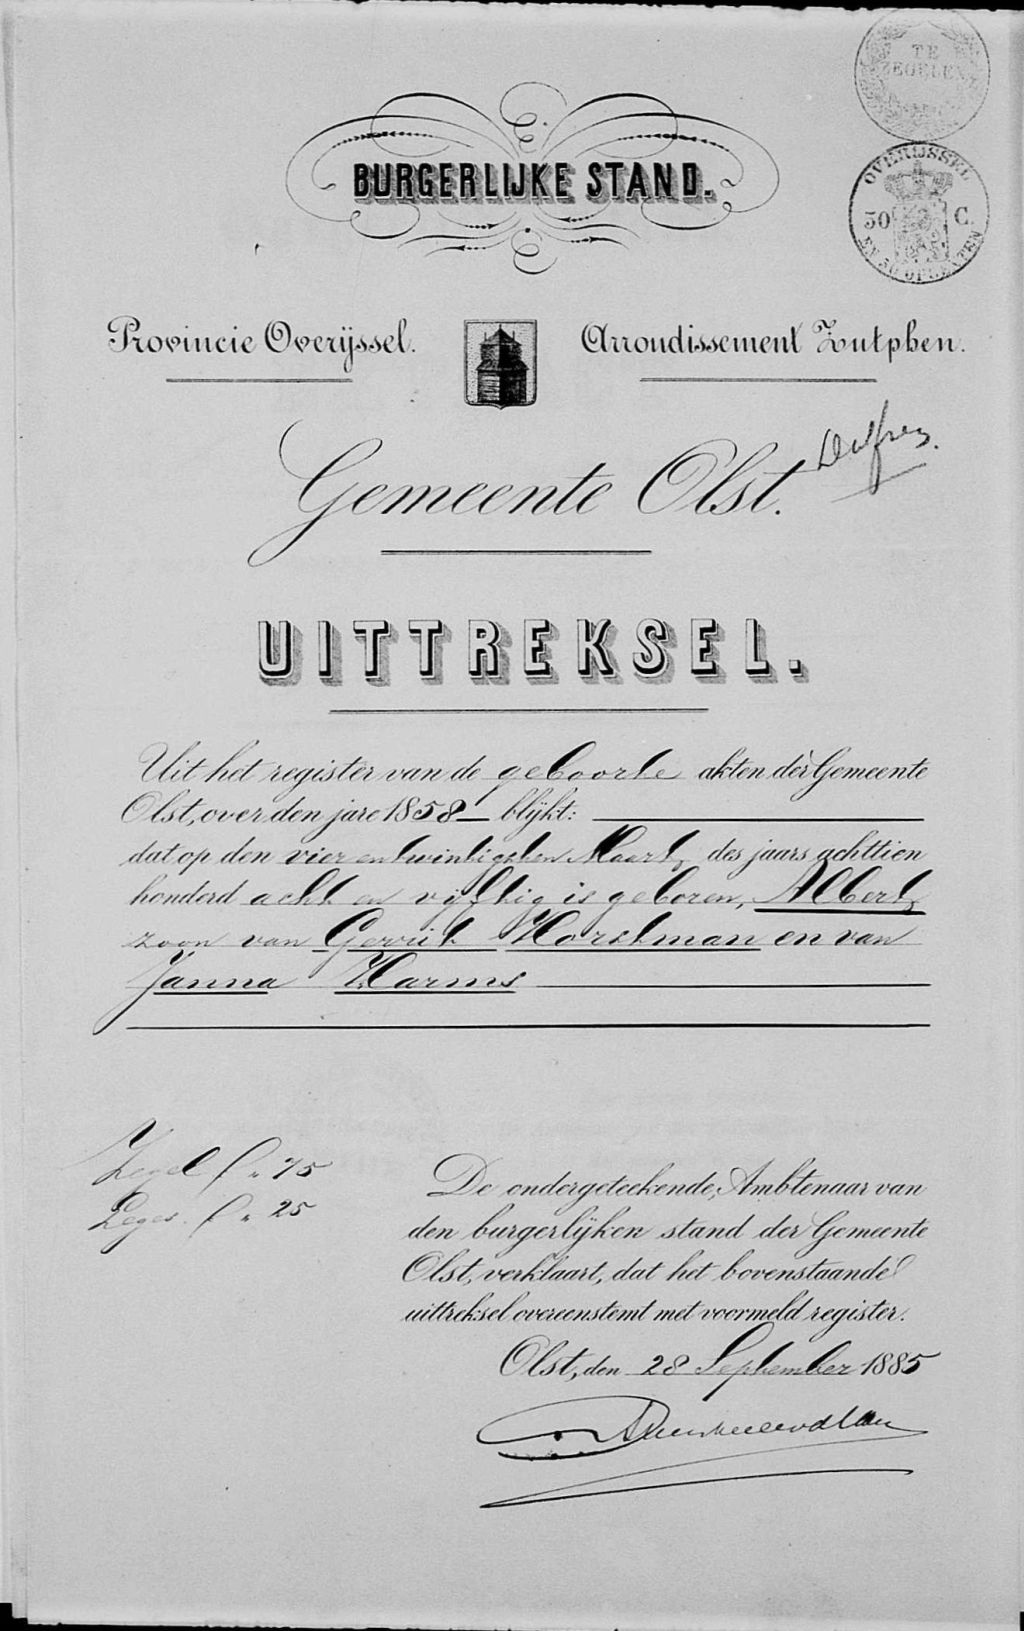 TE
ZEGELEN
OVERIJSSEL
50 C.
EN 50 OPCENTEN
BURGERLIJKE STAND.
Provincie Overijssel.
Arrondissement Zutphen.
Gemeente Olst.
UITTREKSEL.
Uit het register van de geboorte akten der Gemeente
Olst, over den jare 1858 blijkt:
dat op den vier en twintigsten Maart, des jaars achttien
honderd acht en vijftig is geboren, Albert,
zoon van Gerrit Horstman en van
Janna Harms
Zegel f „ 75
Leges. f „ 25
De ondergeteekende, Ambtenaar van
den burgerlijken stand der Gemeente
Olst, verklaart, dat het bovenstaande
uittreksel overeenstemt met voormeld register.
Olst, den 28 September 1885